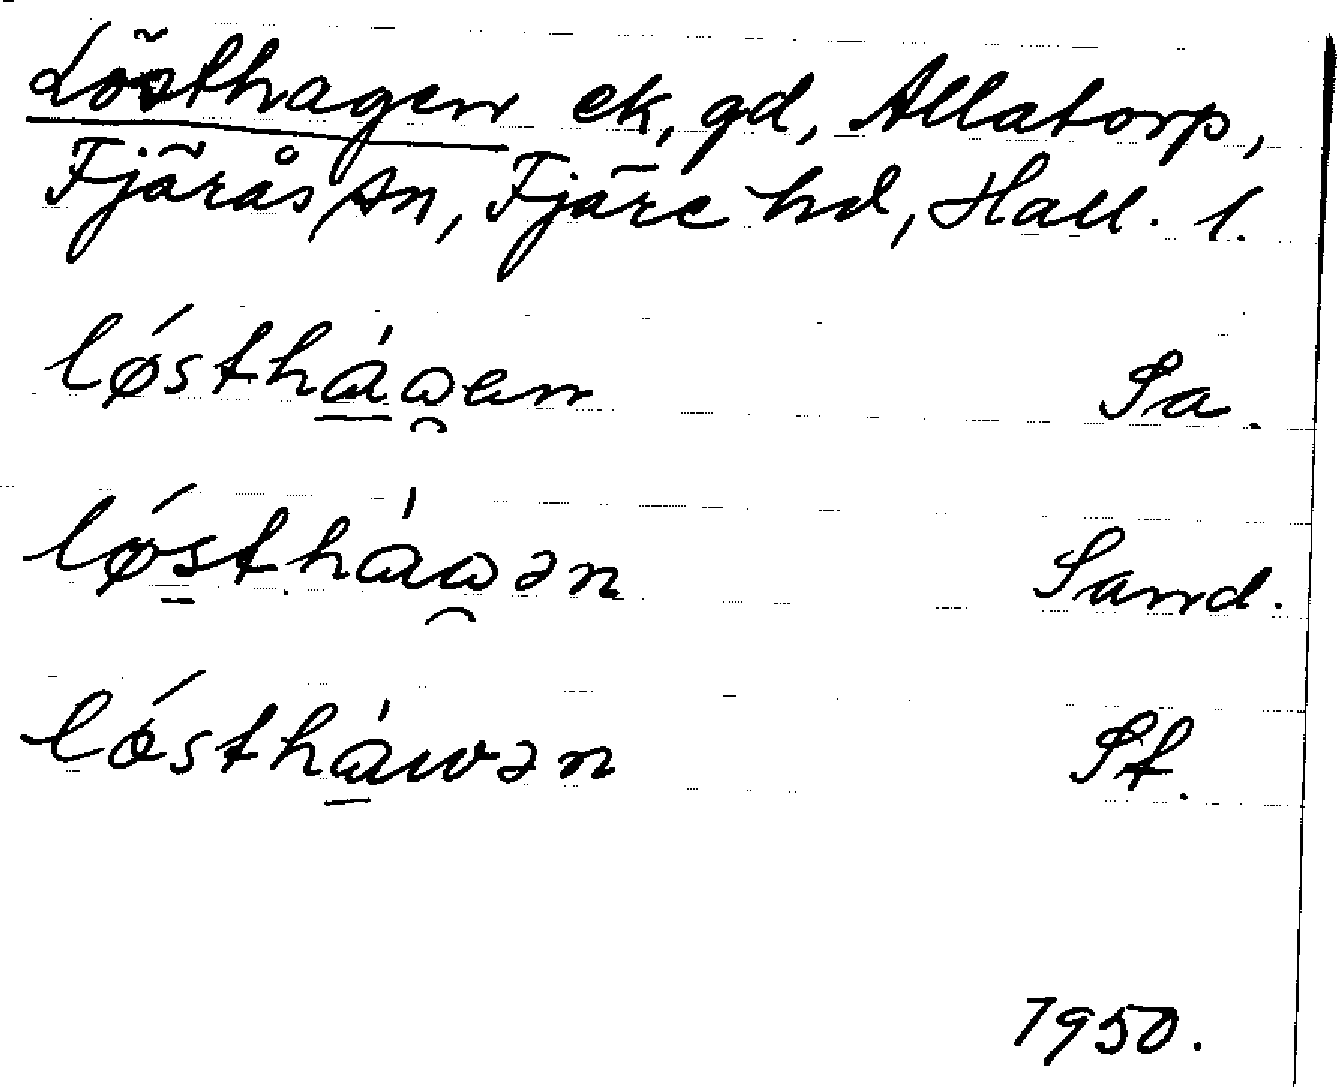 Lösthagen ek, gd, Allatorp,
Fjärås sn, Fjäre hd, Hall. l.
lǿsthá̱ω̯en Sa.
lǿs̱tháω̯ən Sand.
lǿsthá̱wən St.
1950.